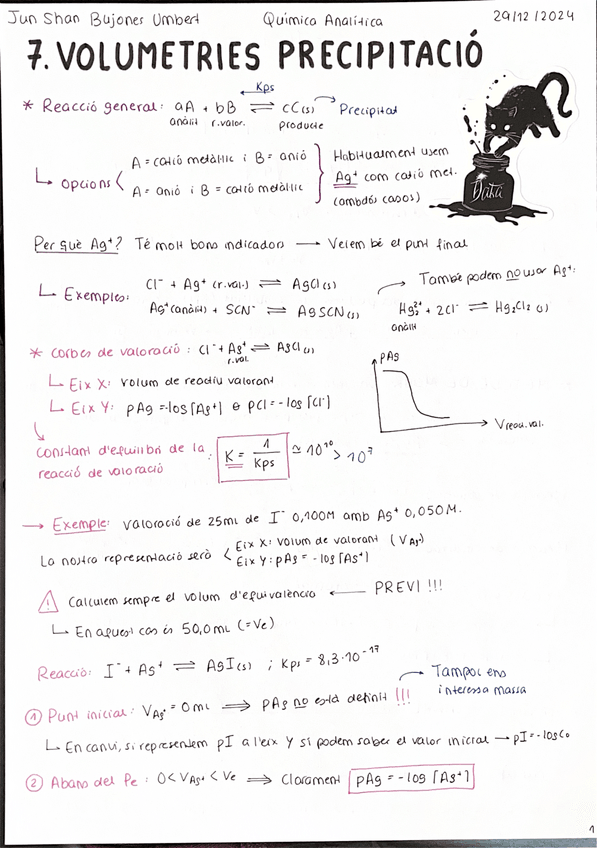 Jun Shan Bujones Umbert Química Analítica 29/12/2024
7. VOLUMETRIES PRECIPITACIÓ
Kps
* Reacció general: aA + bB ⇌ cC(s) Precipitat
anàlit r.valor. producte
Opcions
A = catió metàl·lic i B = anió
A = anió i B = catió metàl·lic
Habitualment usem
Ag⁺ com catió met.
(ambdós casos)
Data
Per què Ag⁺? Té molt bons indicadors → Veiem bé el punt final
Exemples:
Cl⁻ + Ag⁺ (r.val.) ⇌ AgCl(s)
Ag⁺(anàlit) + SCN⁻ ⇌ AgSCN(s)
També podem no usar Ag⁺:
Hg₂²⁺ + 2Cl⁻ ⇌ Hg₂Cl₂ (s)
anàlit
* Corbes de valoració: Cl⁻ + Ag⁺ ⇌ AgCl(s)
r.val.
Eix X: volum de reactiu valorant
Eix Y: pAg = -log[Ag⁺] o pCl = -log[Cl⁻]
pAg
Vreac.val.
Constant d'equilibri de la
reacció de valoració : K = 1/Kps ≃ 10¹⁰ > 10⁷
→ Exemple: Valoració de 25mL de I⁻ 0,100M amb Ag⁺ 0,050M.
La nostra representació serà
Eix X: volum de valorant (VAg⁺)
Eix Y: pAg = -log[Ag⁺]
⚠ Calculem sempre el volum d'equivalència ← PREVI !!!
En aquest cas és 50,0mL (=Ve)
Reacció: I⁻ + Ag⁺ ⇌ AgI(s) ; Kps = 8,3·10⁻¹⁷
Tampoc ens
interessa massa
① Punt inicial: VAg⁺ = 0mL ⇒ pAg no està definit !!!
En canvi, si representem pI a l'eix Y sí podem saber el valor inicial → pI = -logCo
② Abans del Pe: 0 < VAg⁺ < Ve ⇒ Clarament pAg = -log[Ag⁺]
1